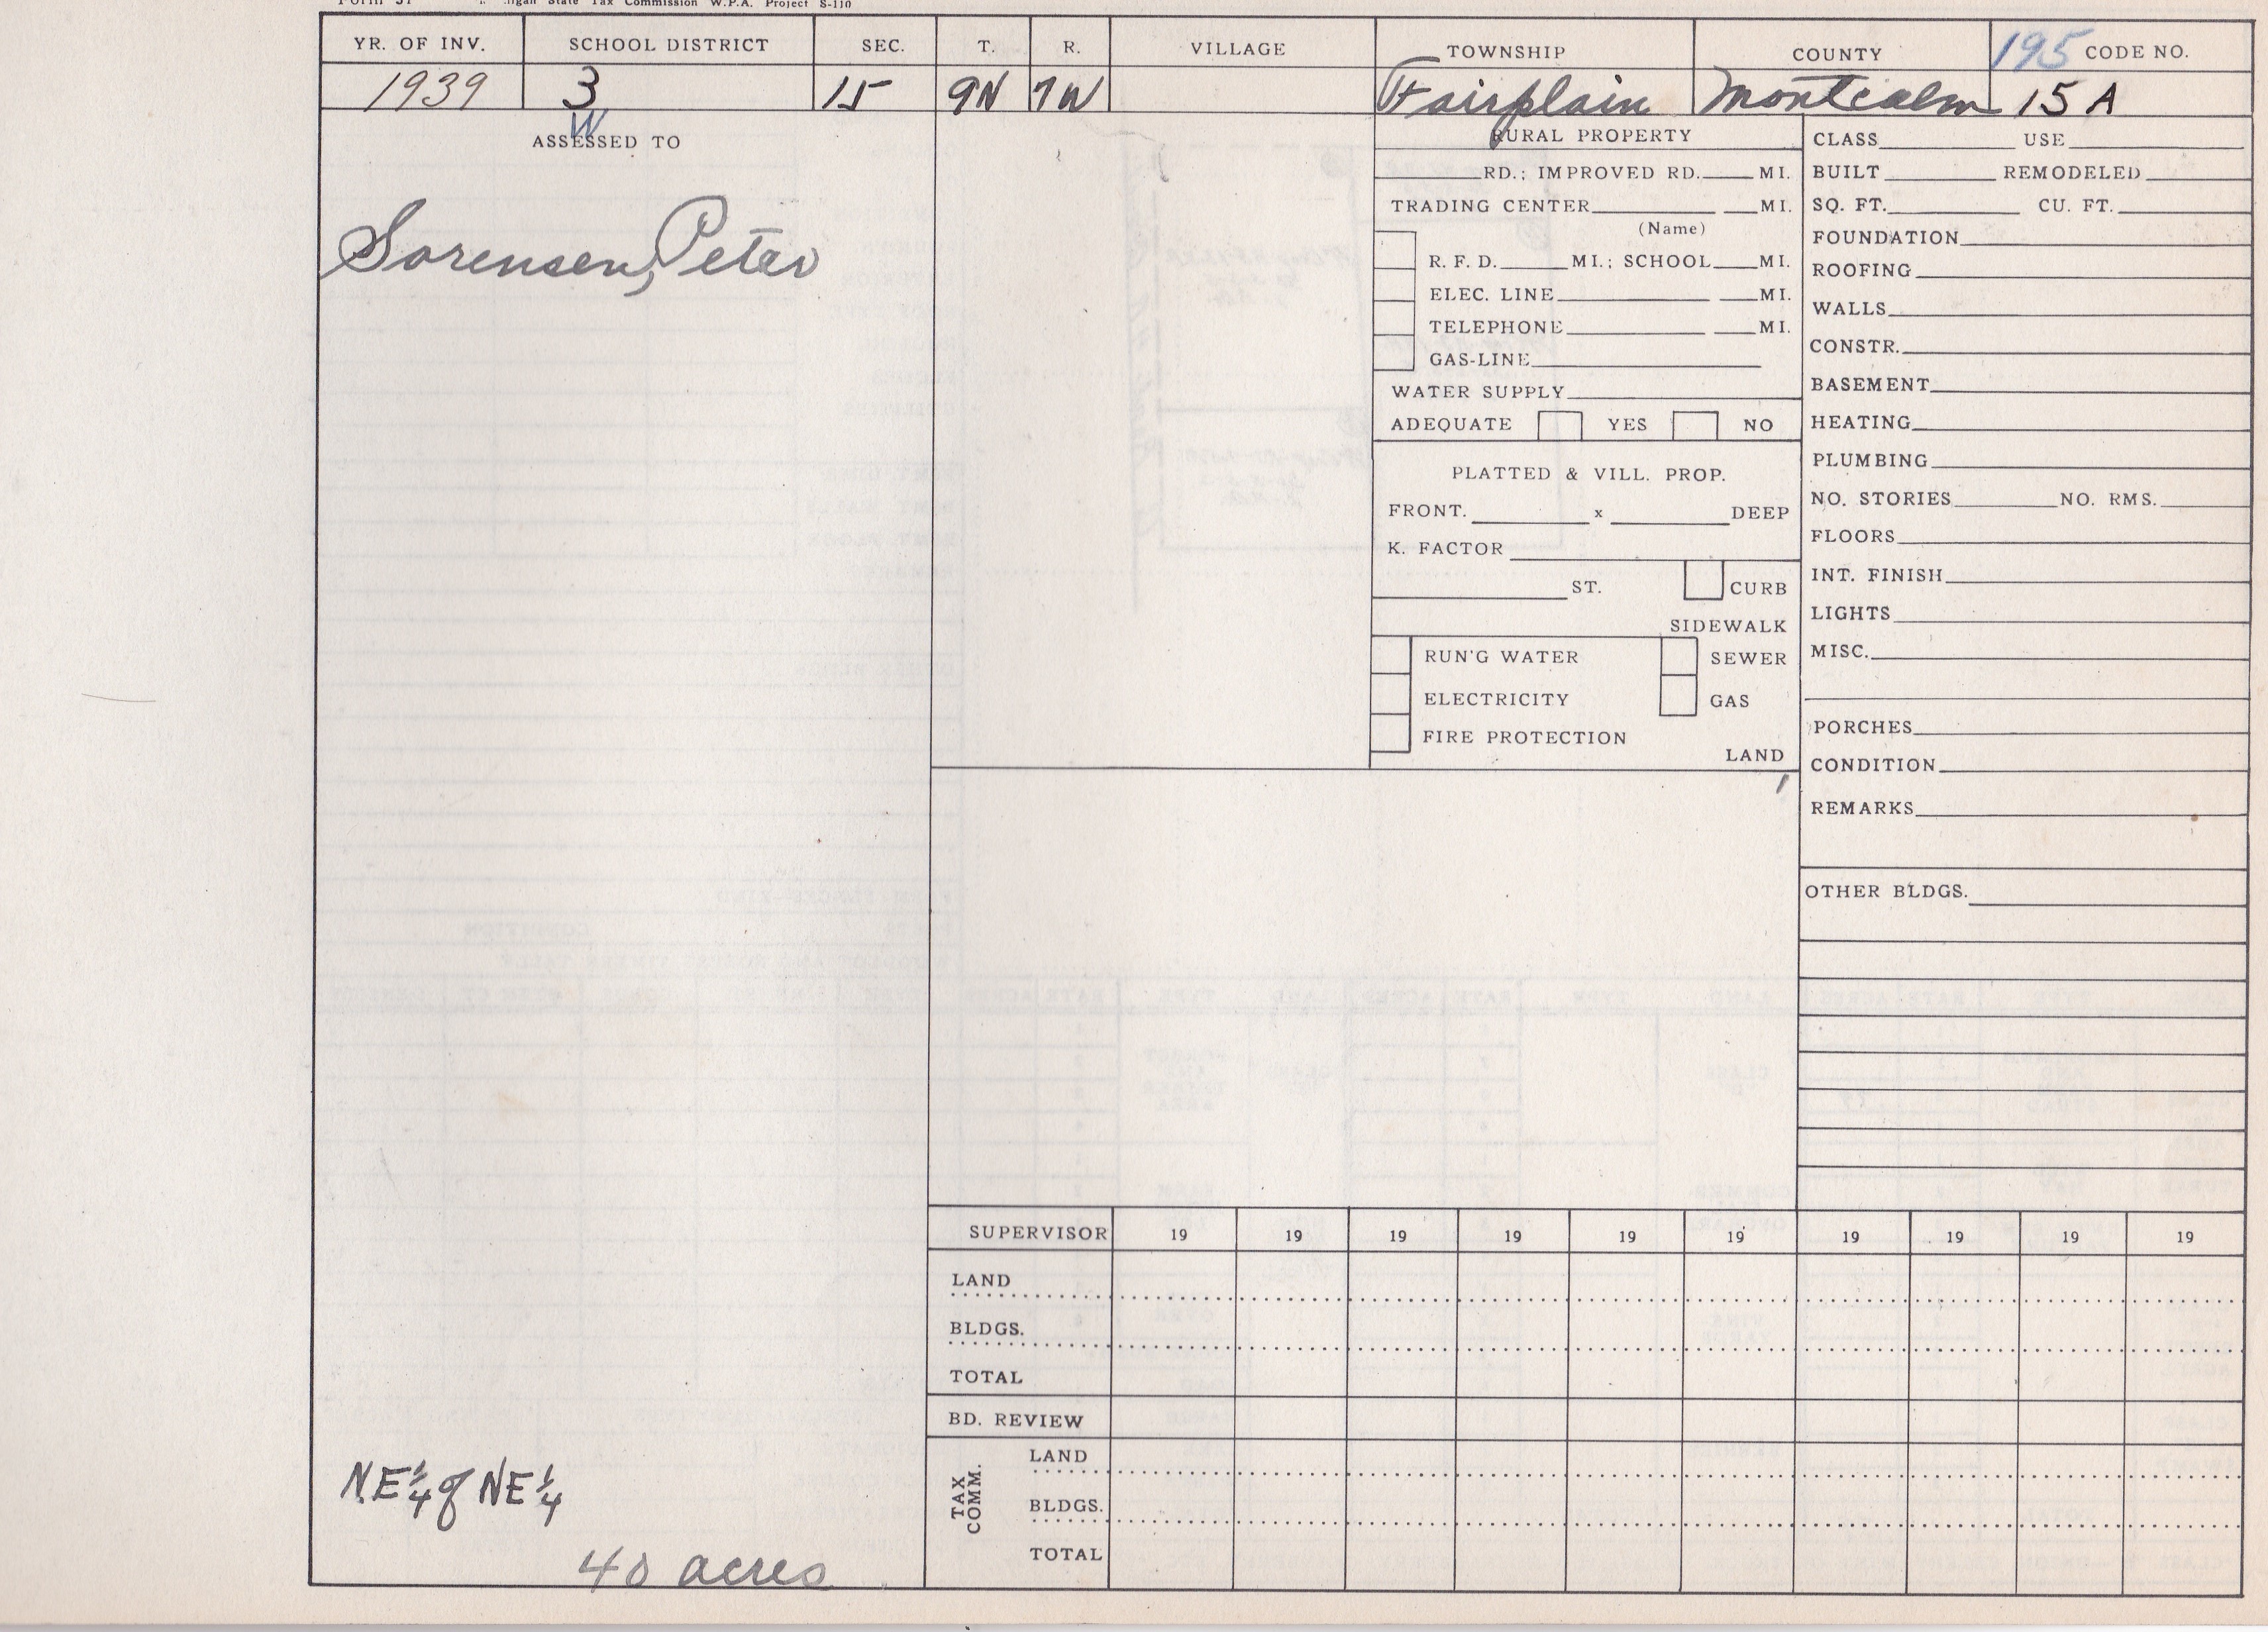 Form 51 igan State Tax Commission W.P.A. Project S-110
YR. OF INV. SCHOOL DISTRICT SEC. T. R. VILLAGE TOWNSHIP COUNTY 195 CODE NO.
1939 3 15 9N 7W Fairplain Montcalm 15 A
W
ASSESSED TO
Sorensen, Peter
NE 1/4 of NE 1/4
40 acres
RURAL PROPERTY
RD.; IMPROVED RD. MI.
TRADING CENTER MI.
(Name)
R. F. D. MI.; SCHOOL MI.
ELEC. LINE MI.
TELEPHONE MI.
GAS-LINE
WATER SUPPLY
ADEQUATE YES NO
PLATTED & VILL. PROP.
FRONT. x DEEP
K. FACTOR
ST. CURB
SIDEWALK
RUN'G WATER SEWER
ELECTRICITY GAS
FIRE PROTECTION
LAND
CLASS USE
BUILT REMODELED
SQ. FT. CU. FT.
FOUNDATION
ROOFING
WALLS
CONSTR.
BASEMENT
HEATING
PLUMBING
NO. STORIES NO. RMS.
FLOORS
INT. FINISH
LIGHTS
MISC.
PORCHES
CONDITION
REMARKS
OTHER BLDGS.
SUPERVISOR 19 19 19 19 19 19 19 19 19 19
LAND
BLDGS.
TOTAL
BD. REVIEW
TAX COMM.
LAND
BLDGS.
TOTAL